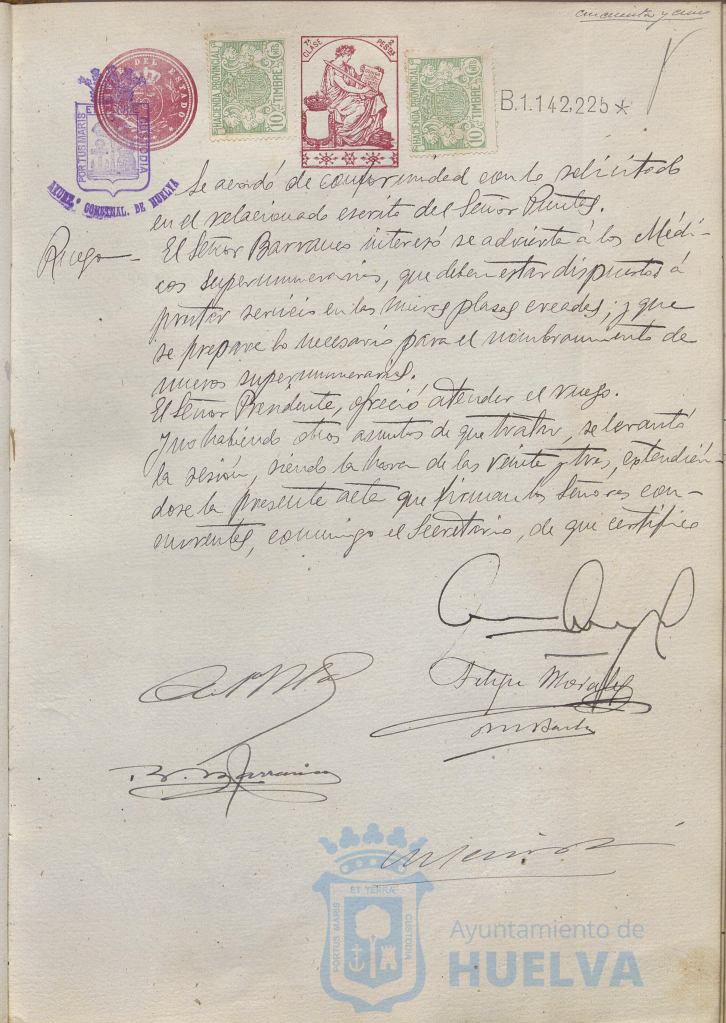 cincuenta y cinco
TIMBRE DEL ESTADO
PORTUS MARIS ET TERRAE CUSTODIA
ARCHº MUNICIPAL DE HUELVA
HACIENDA PROVINCIAL
TIMBRE
10 CTS
7ª CLASE
PESETAS
HACIENDA PROVINCIAL
TIMBRE
10 CTS
B.1.142,225*
Se acordó de conformidad con lo solicitado
en el relacionado escrito del Señor
Ruego— El Señor Barranco interesó se advierta á los Médi-
cos supernumerarios, que deben estar dispuestos á
prestar servicio en las nuevas plazas creadas; y que
se prepare lo necesario para el nombramiento de
nuevos supernumerarios.
El Señor Presidente, ofreció atender el ruego.
Y no habiendo otros asuntos de que tratar, se levantó
la sesión, siendo la hora de las veinte y tres, extendién-
dose la presente acta que firman los Señores con-
currentes, conmigo el Secretario, de que certifico
Felipe Morales
B. Barranco
PORTUS MARIS ET TERRÆ CUSTODIA
Ayuntamiento de
HUELVA